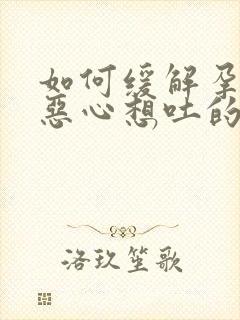 如何缓解孕
恶心想吐的
洛玖笙歌